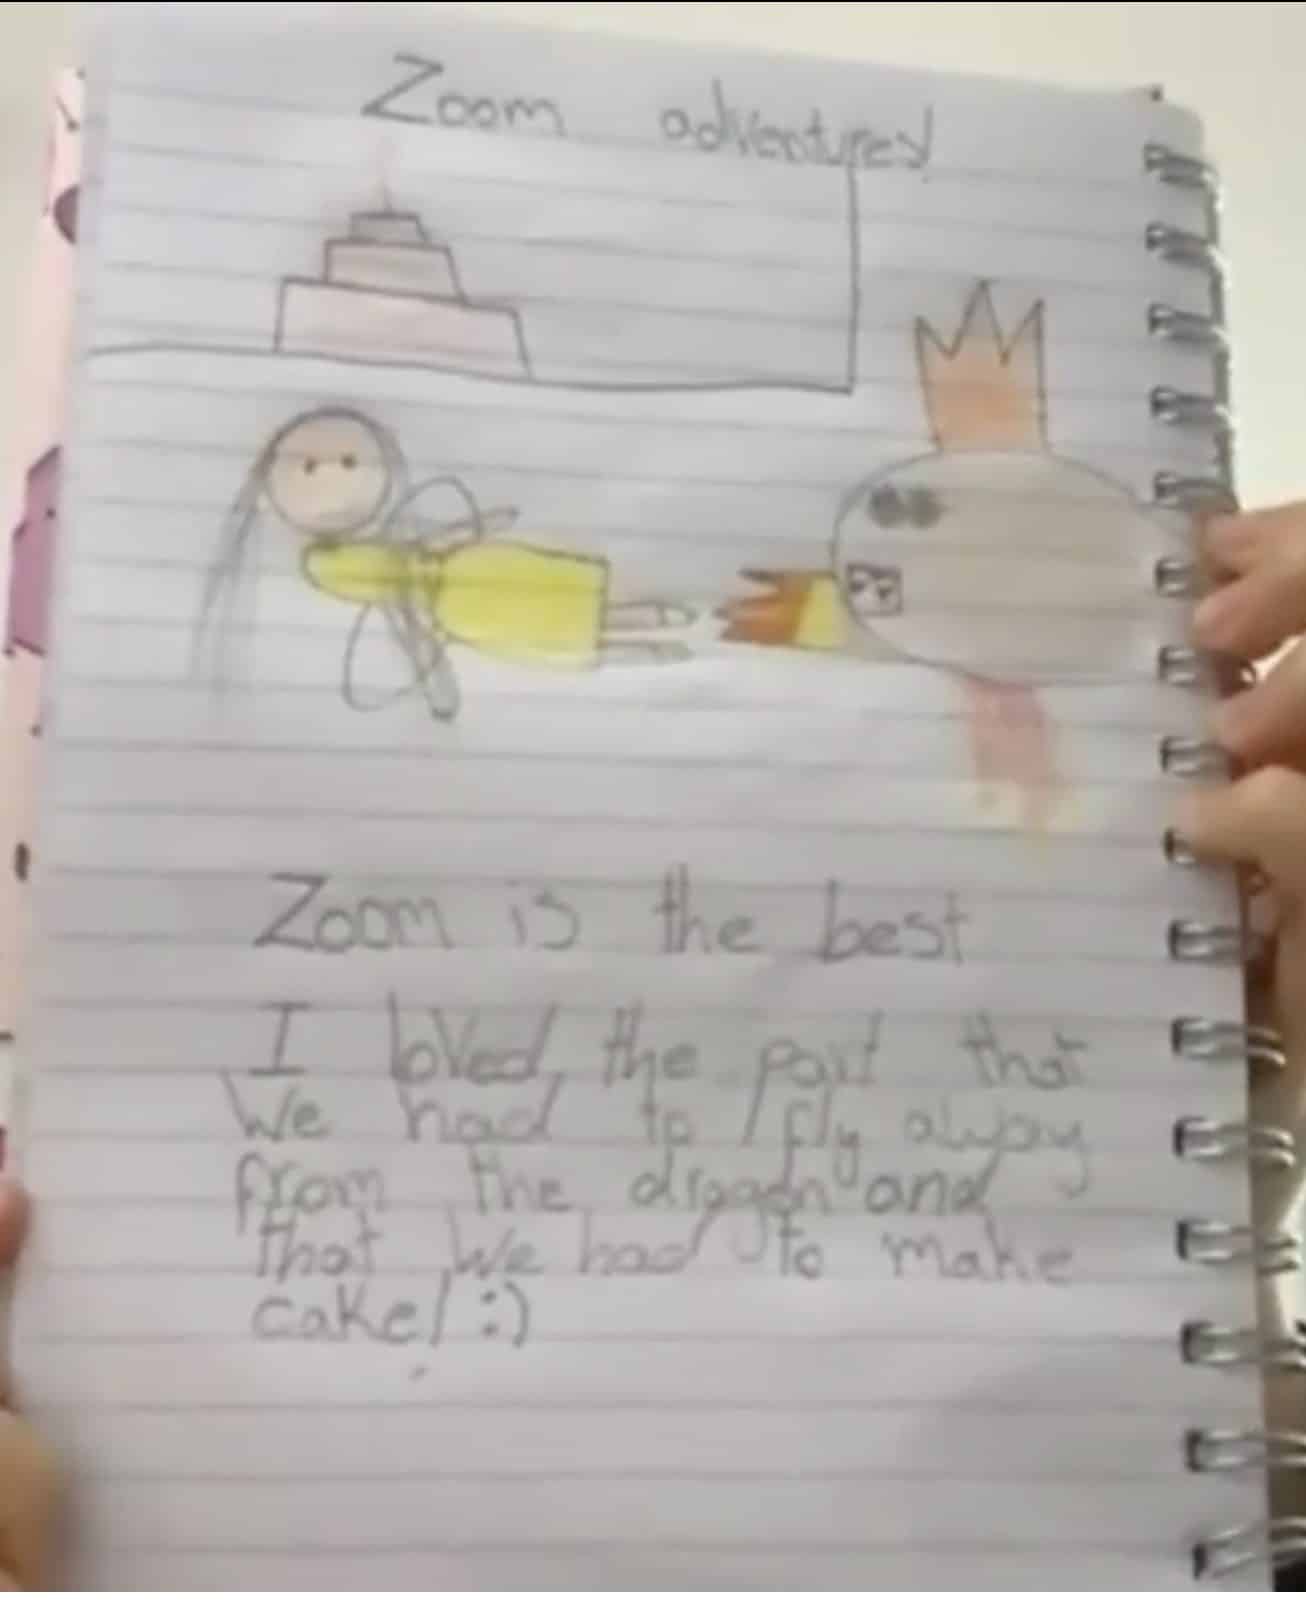 Zoom adventures!
Zoom is the best
I loved the part that
we had to fly away
from the dragon and
that we had to make
cake! :)